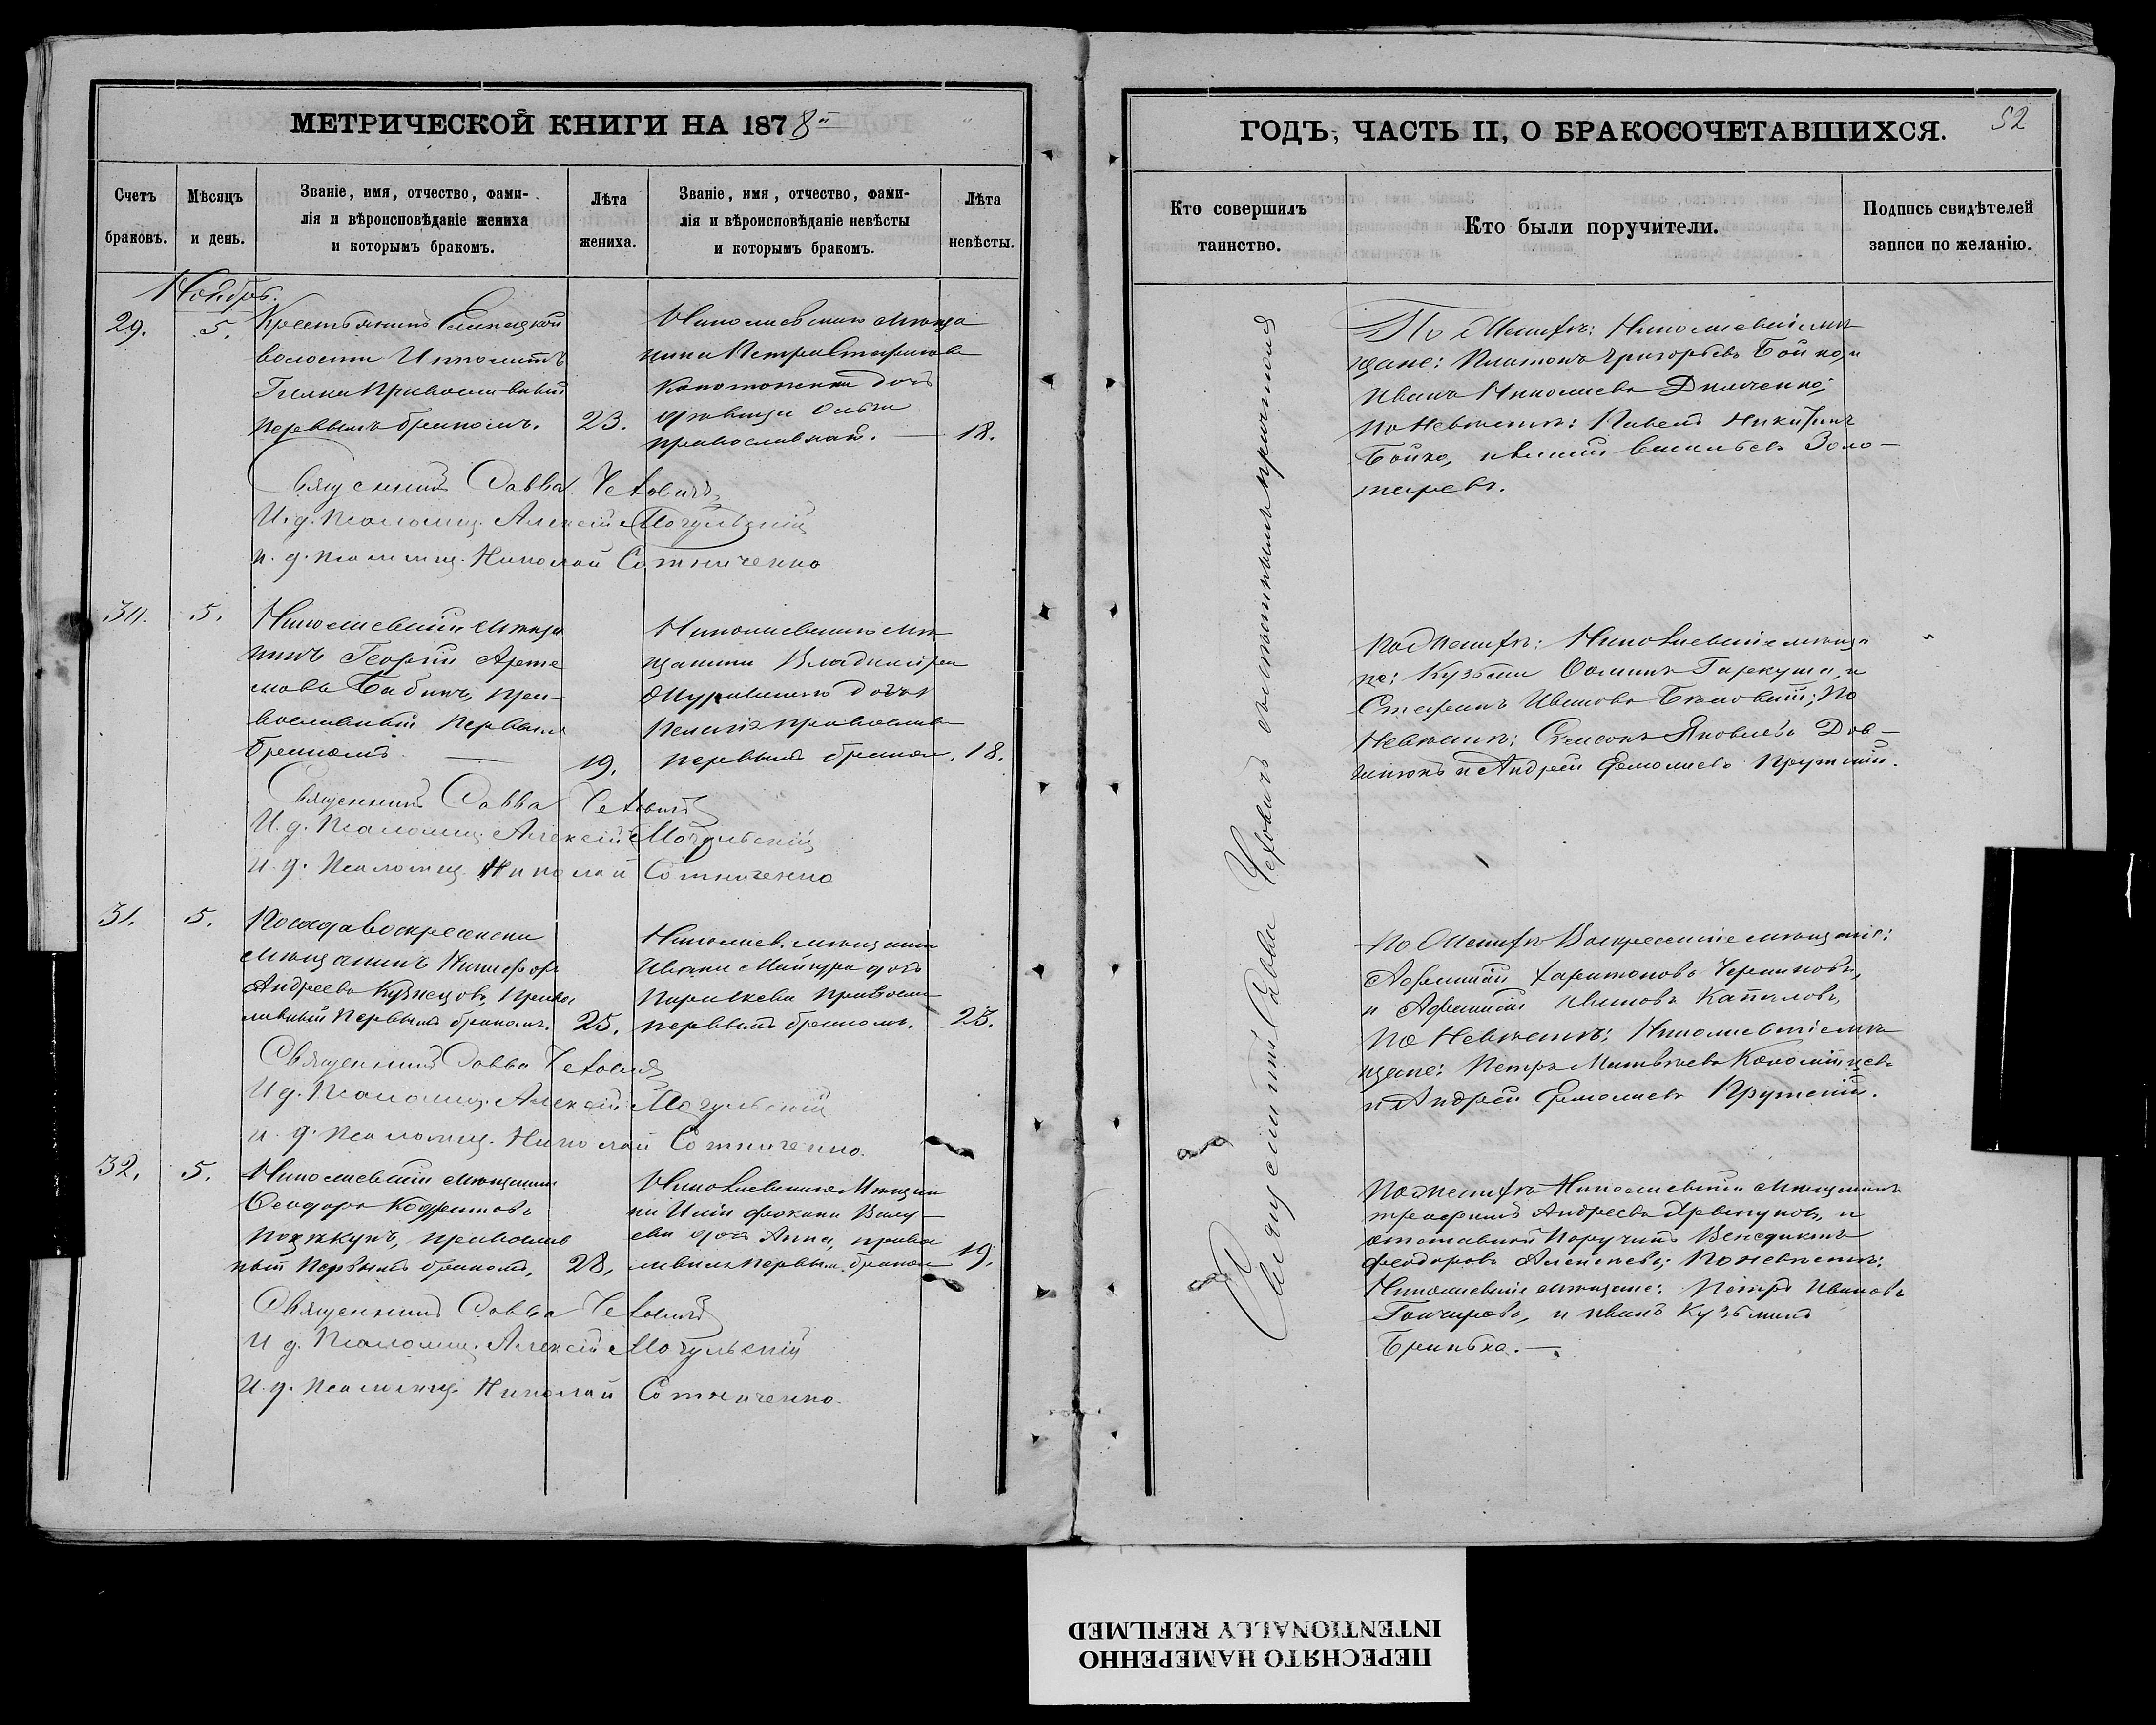 МЕТРИЧЕСКОЙ КНИГИ НА 1878й
Счетъ браковъ.
Мѣсяцъ и день.
Званіе, имя, отчество, фами-
лія и вѣроисповѣданіе жениха
и которымъ бракомъ.
Лѣта жениха.
Званіе, имя, отчество, фами-
лія и вѣроисповѣданіе невѣсты
и которымъ бракомъ.
Лѣта невѣсты.
Ноябрь.
29.
5.
Крестьянинъ
волости Ипполитъ
православный
первымъ бракомъ.
23.
Николаевскаго мѣща
нина Петра Стефанова
дочь
дѣвица Ольга
православная. —
18.
Священникъ Савва Чеховичъ
И. д. псаломщ. Алексій Мочульскій
и. д. псаломщ. Николай Сотниченко
30.
5.
Николаевскій мѣща
нинъ Георгій Арте
мовъ Бабичъ, пра-
вославный первымъ
бракомъ —
19.
Николаевскаго мѣ
щанина Владиміра
Журавскаго дочь
православ
первымъ браком.
18.
Священникъ Савва Чеховичъ
И. д. псаломщ. Алексій Мочульскій
и. д. псаломщ. Николай Сотниченко
31.
5.
Посада Воскресенска
мѣщанинъ Никифоръ
Андреевъ Кузнецовъ, право
славный первымъ бракомъ.
25.
Николаев. мѣщанина
Ивана дочь
Параскева православ
первымъ бракомъ.
23.
Священникъ Савва Чеховичъ
И д. псаломщ. Алексій Мочульскій
и. д. псаломщ. Николай Сотниченко.
32.
5.
Николаевскій мѣщанинъ
Ѳеодоръ
православ
ный первымъ бракомъ,
28,
Николаевскаго мѣщани
на Иліи
дочь Анна, право
славная первым. браком
19.
Священникъ Савва Чеховичъ
И д. псаломщ. Алексій Мочульскій
И. д. псаломщ. Николай Сотниченко.
ГОДЪ, ЧАСТЬ II, О БРАКОСОЧЕТАВШИХСЯ.
52
Кто совершилъ таинство.
Кто были поручители.
Подпись свидѣтелей
записи по желанію.
Священникъ Савва Чеховичъ съ причтомъ
По Женихѣ: Николаевскіе мѣ
щане: Платонъ Григорьевъ Бойко, и
Иванъ Николаевъ
по Невѣстѣ: Павелъ Никитинъ
Бойко, и Васильевъ Золо-
таревъ.
По Женихѣ: Николаевскіе мѣща
не: Кузьма Ѳоминъ Гаркуша, и
Стефанъ Ивановъ; По
Невѣстѣ: Яковлевъ Дов-
и Андрей Ермолаевъ
По Женихѣ Воскресенскіе мѣщане:
Афанасій Харитоновъ
и Афанасій Ивановъ
По Невѣстѣ; Николаевскіе мѣ
щане: Петръ Матвѣевъ
и Андрей Ермолаевъ
По Женихѣ Николаевскій мѣщанинъ
Трофимъ Андреевъ и
отставной Поручикъ Венедиктъ
Феодоровъ Алексѣевъ; По невѣстѣ:
Николаевскіе мѣщане: Петръ Ивановъ
Гончаровъ, и Иванъ Кузьминъ
ПЕРЕСНЯТО НАМЕРЕННО
INTENTIONALLY REFILMED